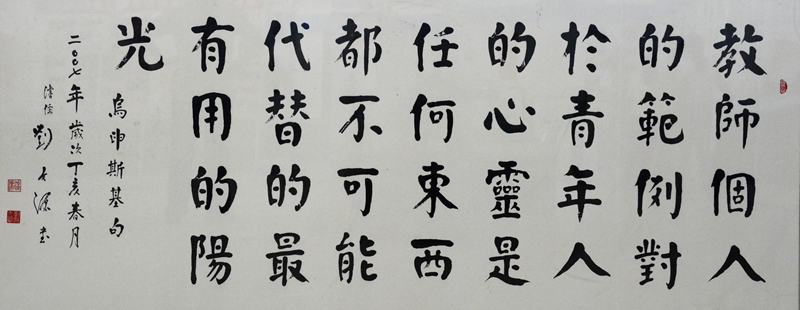 教師個人
的範例對
於青年人
的心靈是
任何東西
都不可能
代替的最
有用的陽
光
烏申斯基句
二〇〇七年歲次丁亥春月
劉